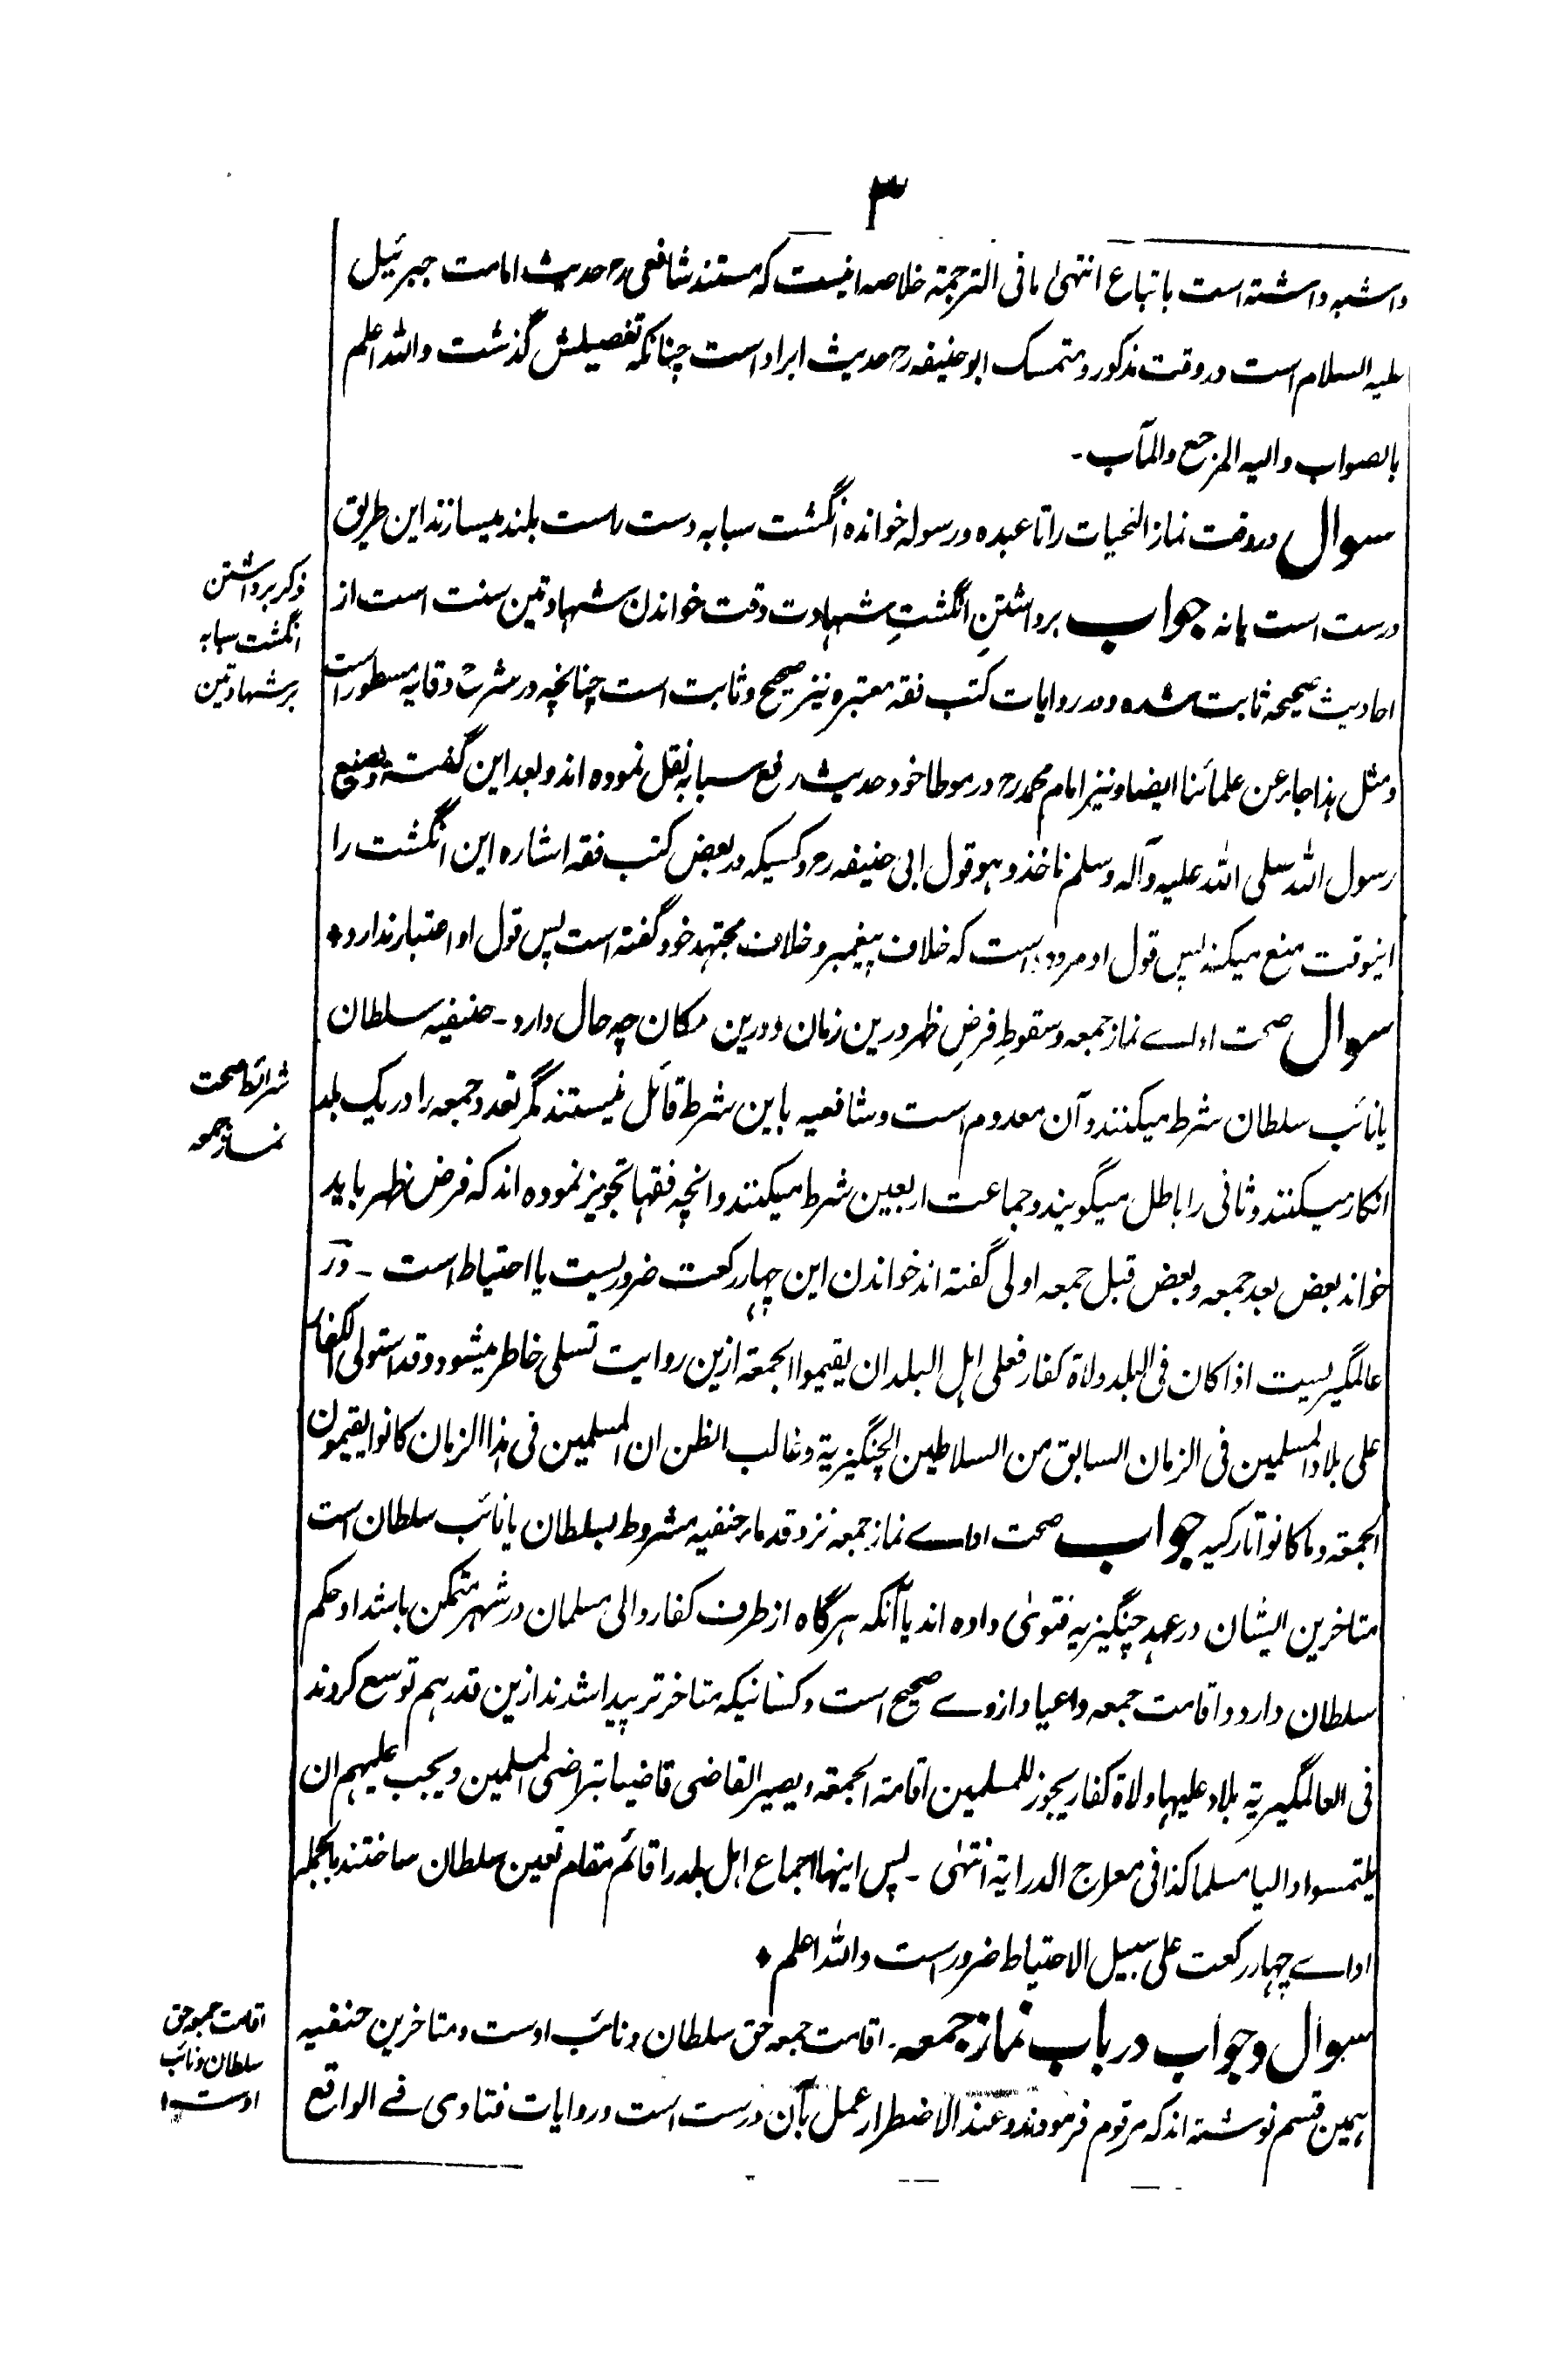 ۳
واشبه داشته است باتباع انتهی ما فی الترجمة خلاصه اینست که مستند شافعی رح حدیث امامت جبرئیل
علیه السلام است در وقت مذکور و متمسک ابو حنیفه رح حدیث ابراد است چنانکه تفصیلش گذشت والله اعلم
بالصواب والیه المرجع والمآب -
سوال در وقت نماز التحیات را تا عبده ورسوله خوانده انگشت سبابه دست راست بلند میسازند این طریق
درست است یا نه جواب برداشتنِ انگشتِ شهادت وقت خواندن شهادتین سنت است از
احادیث صحیحه ثابت شده و در روایات کتب فقه معتبره نیز صحیح و ثابت است چنانچه در شرح وقایه مسطور است
و مثل هذا جاء عن علمائنا ایضا و نیز امام محمد رح در موطا خود حدیث رفع سبابه نقل نموده اند و بعد این گفته و بصنیع
رسول الله صلی الله علیه وآله وسلم ناخذ و هو قول ابی حنیفه رح و کسیکه در بعض کتب فقه اشاره این انگشت را
اینوقت منع میکند پس قول او مردود است که خلاف پیغمبر و خلاف مجتهد خود گفته است پس قول او اعتبار ندارد *
سوال صحت اداے نماز جمعه و سقوطِ فرضِ ظهر درین زمان و درین مکان چه حال دارد - حنفیه سلطان
یا نائب سلطان شرط میکنند و آن معدوم است و شافعیه باین شرط قائل نیستند مگر تعدد جمعه را در یک بلد
انکار میکنند و ثانی را باطل میگویند و جماعت اربعین شرط میکنند و انچه فقها تجویز نموده اند که فرض ظهر باید
خواند بعض بعد جمعه و بعض قبل جمعه اولی گفته اند خواندن این چهار رکعت ضروریست یا احتیاط است - و در
عالمگیریست اذا کان فی البلد ولاة کفار فعلی اهل البلد ان یقیموا الجمعة ازین روایت تسلی خاطر میشود و قد استولی الکفار
علی بلاد المسلمین فی الزمان السابق من السلاطین الچنگیزیة و غالب الظن ان المسلمین فی هذا الزمان کانوا یقیمون
الجمعة و ما کانوا تارکیه جواب صحت اداے نماز جمعه نزد قدماء حنفیه مشروط بسلطان یا نائب سلطان است
متاخرین ایشان در عهد چنگیزیه فتویٰ داده اند بآنکه هرگاه از طرف کفار والی مسلمان در شهر متمکن باشد او حکم
سلطان دارد و اقامت جمعه و اعیاد از وے صحیح است و کسانیکه متاخر تر پیدا شدند ازین قدر هم توسع کردند
فی العالمگیریة بلاد علیها ولاة کفار یجوز للمسلمین اقامة الجمعة و یصیر القاضی قاضیا بتراضی المسلمین و یجب علیهم ان
یلتمسوا والیا مسلما کذا فی معراج الدرایة انتهیٰ - پس اینها اجماع اهل بلد را قائم مقام تعین سلطان ساختند بالجمله
اداے چهار رکعت علی سبیل الاحتیاط ضرور است والله اعلم *
سوال وجواب در باب نماز جمعه - اقامت جمعه حق سلطان و نائب اوست و متاخرین حنفیه
همین قسم نوشته اند که مرقوم فرمودند و عند الاضطرار عمل بآن درست است و روایات فتاوی فے الواقع
ذکر برداشتن
انگشت سبابه
بر شهادتین
شرائط صحت
نماز جمعه
اقامت جمعه حق
سلطان و نائب
اوست ۱۲